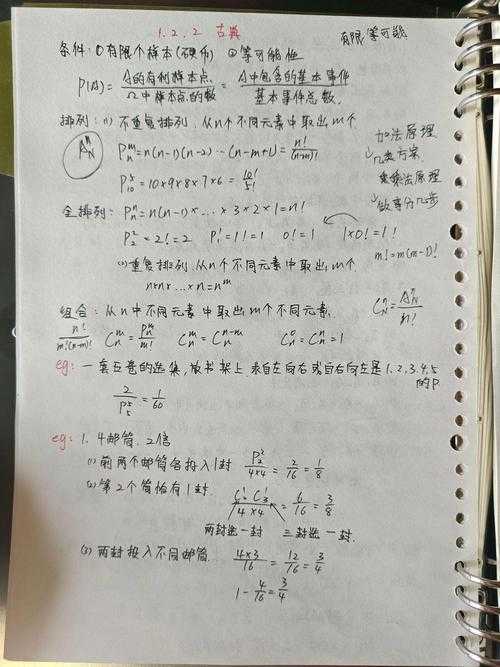 1.2.2 古典
有限 等可能
条件: ①有限个样本(硬币) ②等可能性
P(A) = A的有利样本点 / Ω中样本点的数 = A中包含的基本事件 / 基本事件总数.
排列: (1) 不重复排列. 从n个不同元素中取出m个.
加法原理
A_N^n
P_n^m = n(n-1)(n-2)…(n-m+1) = n!/(n-m)!
↳几类方案.
乘法原理
P_10^5 = 10×9×8×7×6 = 10!/5!
↳做事分几步
全排列: P_n^n = n(n-1)×…×3×2×1 = n!
P_2^2 = 2! = 2 P_1^1 = 1! = 1 0! = 1 1×0! = 1!
m! = m(m-1)!
(2)重复排列. 从n个不同元素中取出m个.
n×n×…×n = n^m
C_N^n = A_N^n / n!
组合: 从n中不同元素中取出m个不同元素.
n!/m!(n-m)! C_n^m = P_n^m/m! C_n^m = C_n^{n-m} C_n^0 = C_n^n = 1
eg: 一套五卷的选集, 放书架上 求自左向右或自右向左是1.2.3.4.5
的P
2/P_5^5 = 1/60
eg: 1. 4邮筒. 2信
(1) 前两个邮筒各投入1封 P_2^2/4×4 = 2/16 = 1/8
(2) 第2个筒恰有1封. C_2^1·C_3^1/4×4 = 6/16 = 3/8
两封选一封 三封选一封.
(3) 两封投入不同邮筒. 4×3/16 = 12/16 = 3/4
1 - 4/16 = 3/4